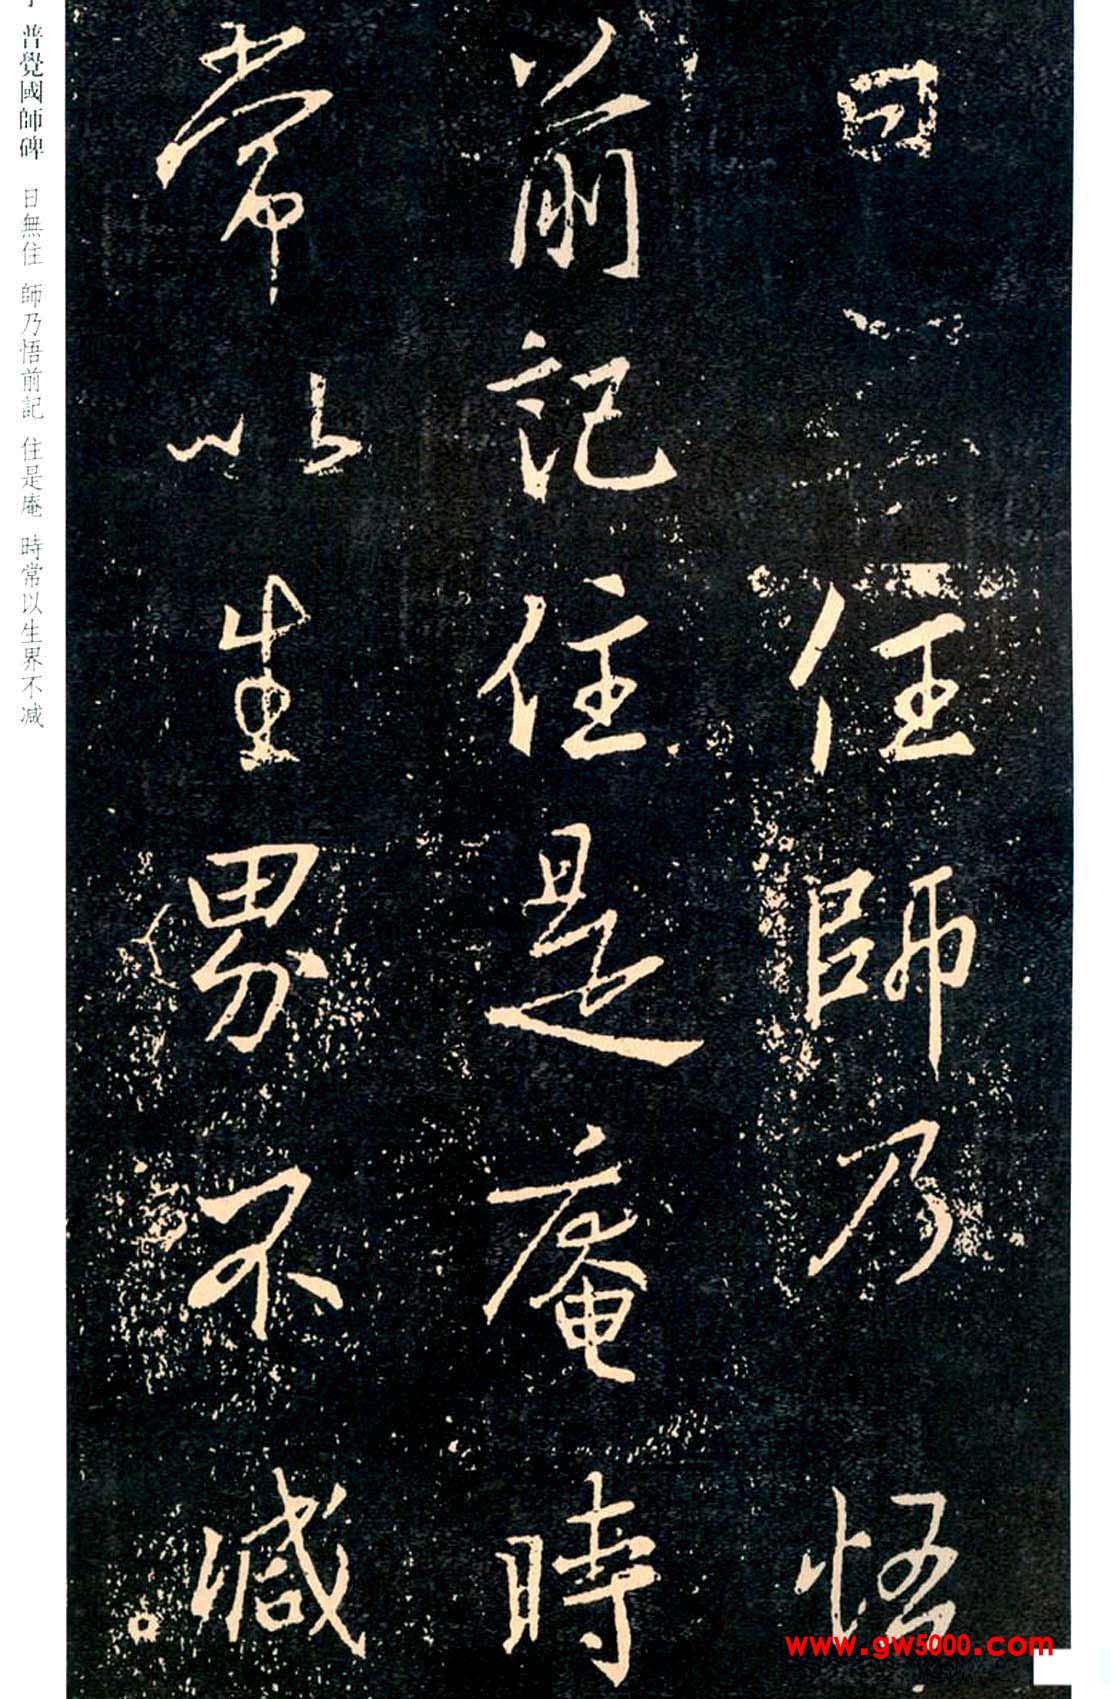 日 住師乃悟
前記住是庵時
常以生界不減
普覺國師碑 日無住 師乃悟前記 住是庵 時常以生界不減
www.gw5000.com